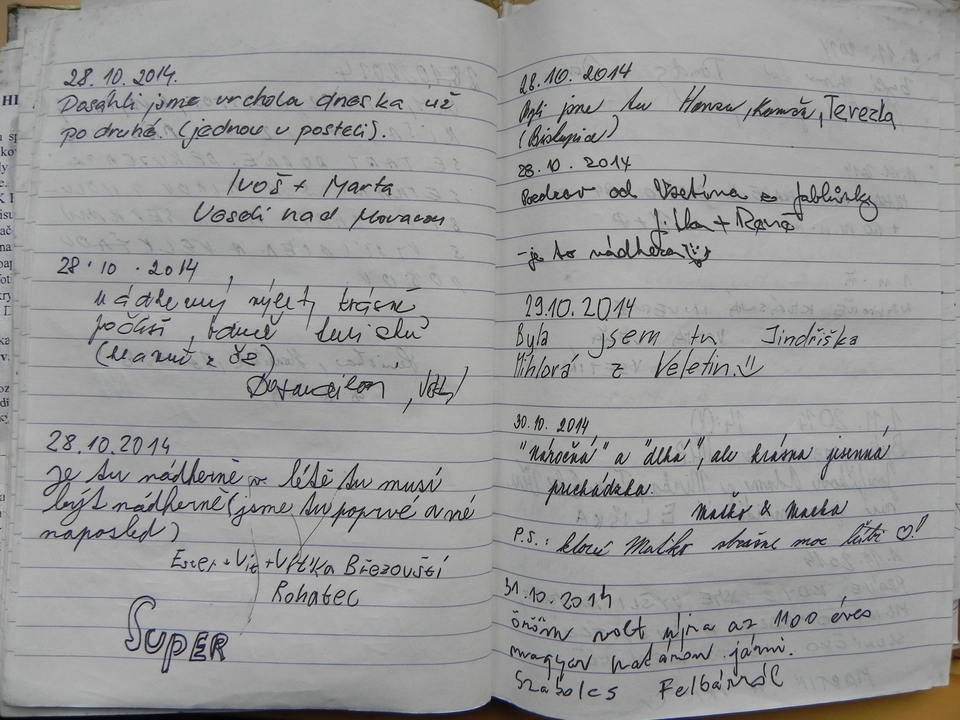 28.10.2014.
Dosáhli jsme vrcholu dneska už
podruhé. (jednou v posteli).
Ivoš + Marta
Veselí nad Moravou
28.10.2014
nádherný výlet, krásné
počasí,
28.10.2014
Je tu nádherně v létě tu musí
být nádherně (jsme tu poprvé a né
naposled)
Ester + Vít + Vítka Březovští
Rohatec
SUPER
28.10.2014
Byli jsme tu Honza, Terezka
(Biskupice)
28.10.2014
Pozdrav od Vsetína z Jablůnky
Jitka + René
- je to nádhera
29.10.2014
Byla jsem tu Jindřiška
Mihlová z Veletin.
30.10.2014
"Náročná" a "dlhá", ale krásna jesenná
prechádzka.
Maťko & Macka
P.S.: Maťko strašne moc ľúbi ♡!
31.10.2014
öröm volt újra az 1100 éves
magyar határon járni.
Szabolcs